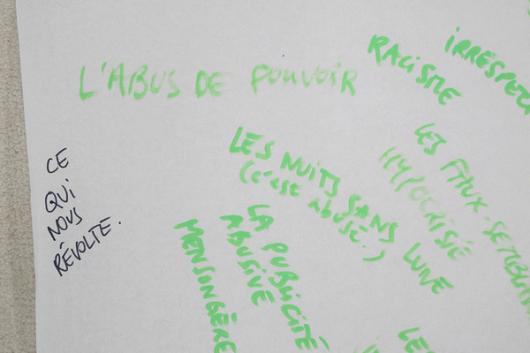 L'ABUS DE POUVOIR
RACISME
IRRESPEC
CE
QUI
NOUS
RÉVOLTE.
LES NUITS SANS LUNE
(c'est abusé..)
LES FAUX-SEMBL
HYPOCRISIE
LA PUBLICITÉ
ABUSIVE
MENSONGÈRE
LES